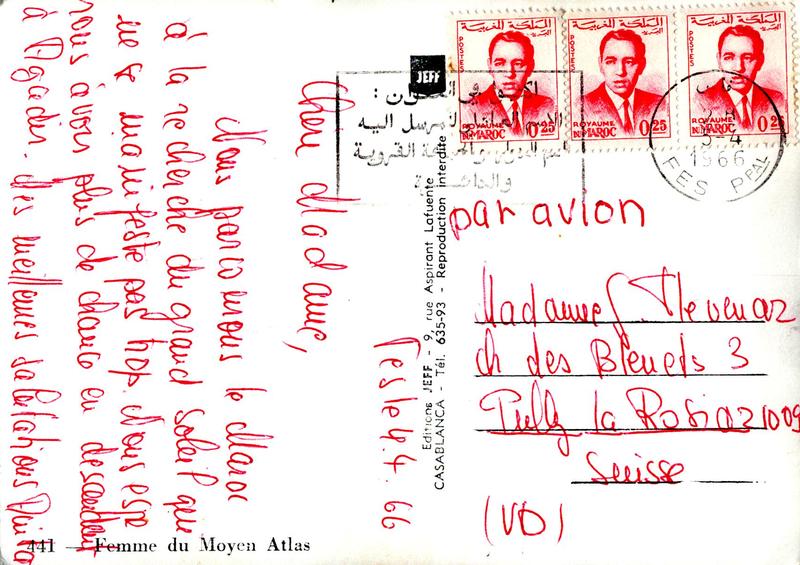 Fes le 4.4.66
Chère Madame,
Nous parcourons le Maroc
à la recherche du grand soleil qui
ne se manifeste pas trop. Nous espé
rons avoir plus de chance en descendant
à Agadir. Mes meilleures salutations
JEFF
المملكة المغربية
المملكة المغربية
المملكة المغربية
POSTES
POSTES
POSTES
ROYAUME DU MAROC 0,25
ROYAUME DU MAROC 0,25
ROYAUME DU MAROC 0,25
فاس
4
1966
FES PPAL
اكتبوا في العنوان :
المرسل اليه
القروية
par avion
Madame
ch des Bleuets 3
Pully La Rosiaz 1009
Suisse
(VD)
Editions JEFF - 9, rue Aspirant Lafuente
CASABLANCA - Tél. 635-93 - Reproduction interdite
441 — Femme du Moyen Atlas